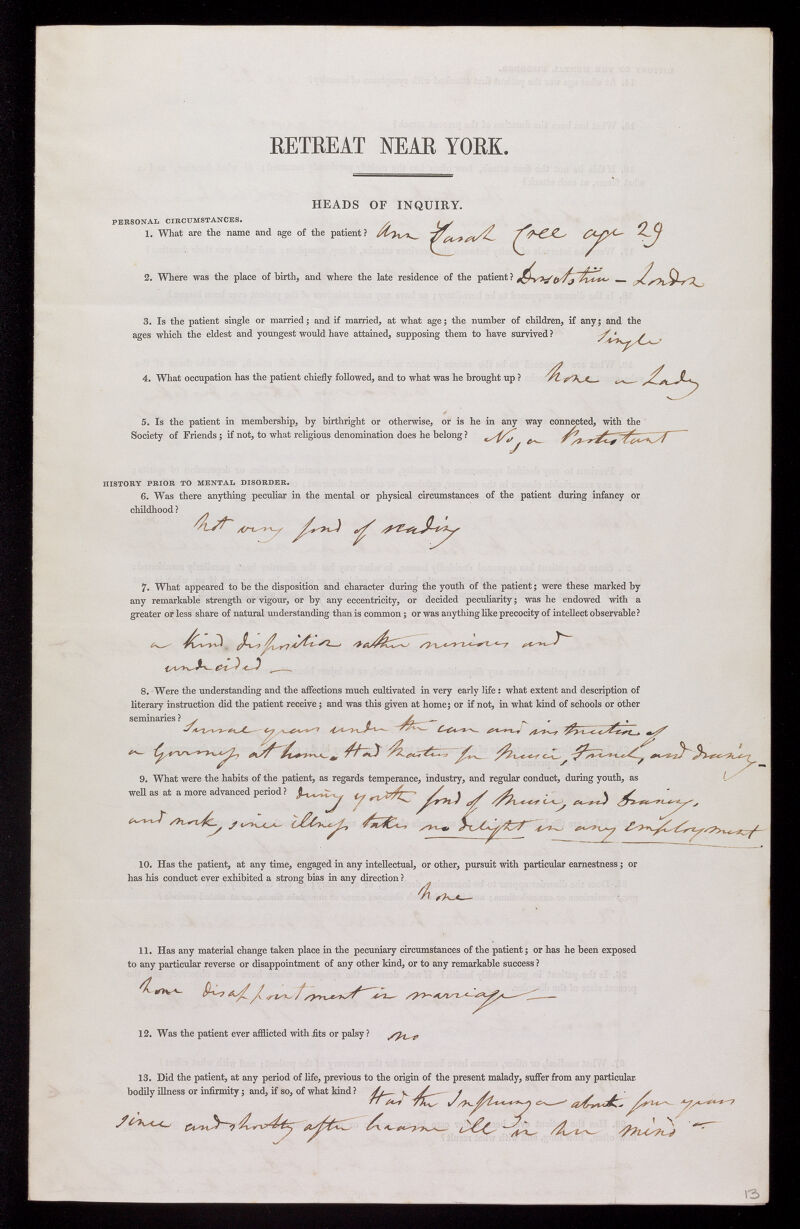 RETREAT NEAR YORK.
HEADS OF INQUIRY.
PERSONAL CIRCUMSTANCES.
1. What are the name and age of the patient? Ann Sarah Cree age 29
2. Where was the place of birth, and where the late residence of the patient? Dorsetshire – London
3. Is the patient single or married; and if married, at what age; the number of children, if any; and the
ages which the eldest and youngest would have attained, supposing them to have survived? Single
4. What occupation has the patient chiefly followed, and to what was he brought up? None a Lady
5. Is the patient in membership, by birthright or otherwise, or is he in any way connected, with the
Society of Friends; if not, to what religious denomination does he belong? No, a Protestant
HISTORY PRIOR TO MENTAL DISORDER.
6. Was there anything peculiar in the mental or physical circumstances of the patient during infancy or
childhood?
Not very fond of reading
7. What appeared to be the disposition and character during the youth of the patient; were these marked by
any remarkable strength or vigour, or by any eccentricity, or decided peculiarity; was he endowed with a
greater or less share of natural understanding than is common; or was anything like precocity of intellect observable?
a kind disposition rather nervious and
undecided —
8. Were the understanding and the affections much cultivated in very early life: what extent and description of
literary instruction did the patient receive; and was this given at home; or if not, in what kind of schools or other
seminaries? Several years under the care and instruction of
a Governess at home. Had Masters for Music, French, and drawing –
9. What were the habits of the patient, as regards temperance, industry, and regular conduct, during youth, as
well as at a more advanced period? During youth fond of Music, and Drawing,
and work, since illness takes no delight in any employment
10. Has the patient, at any time, engaged in any intellectual, or other, pursuit with particular earnestness; or
has his conduct ever exhibited a strong bias in any direction?
None
11. Has any material change taken place in the pecuniary circumstances of the patient; or has he been exposed
to any particular reverse or disappointment of any other kind, or to any remarkable success?
None disappointment in marriage —
12. Was the patient ever afflicted with fits or palsy? no
13. Did the patient, at any period of life, previous to the origin of the present malady, suffer from any particular
bodily illness or infirmity; and, if so, of what kind? Had the Influenza about four years
since and shortly after became ill in her mind –
13